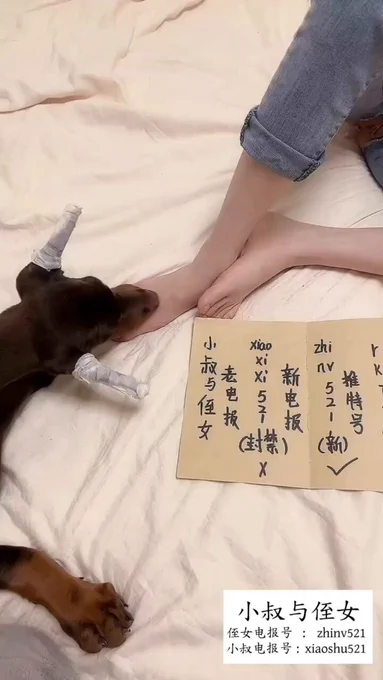 小叔与侄女
老电报
xiao
xi
xi
5
2
1
(封禁)
X
新电报
zhi
nv
5
2
1
(新)
✓
推特号
小叔与侄女
侄女电报号 : zhinv521
小叔电报号:xiaoshu521